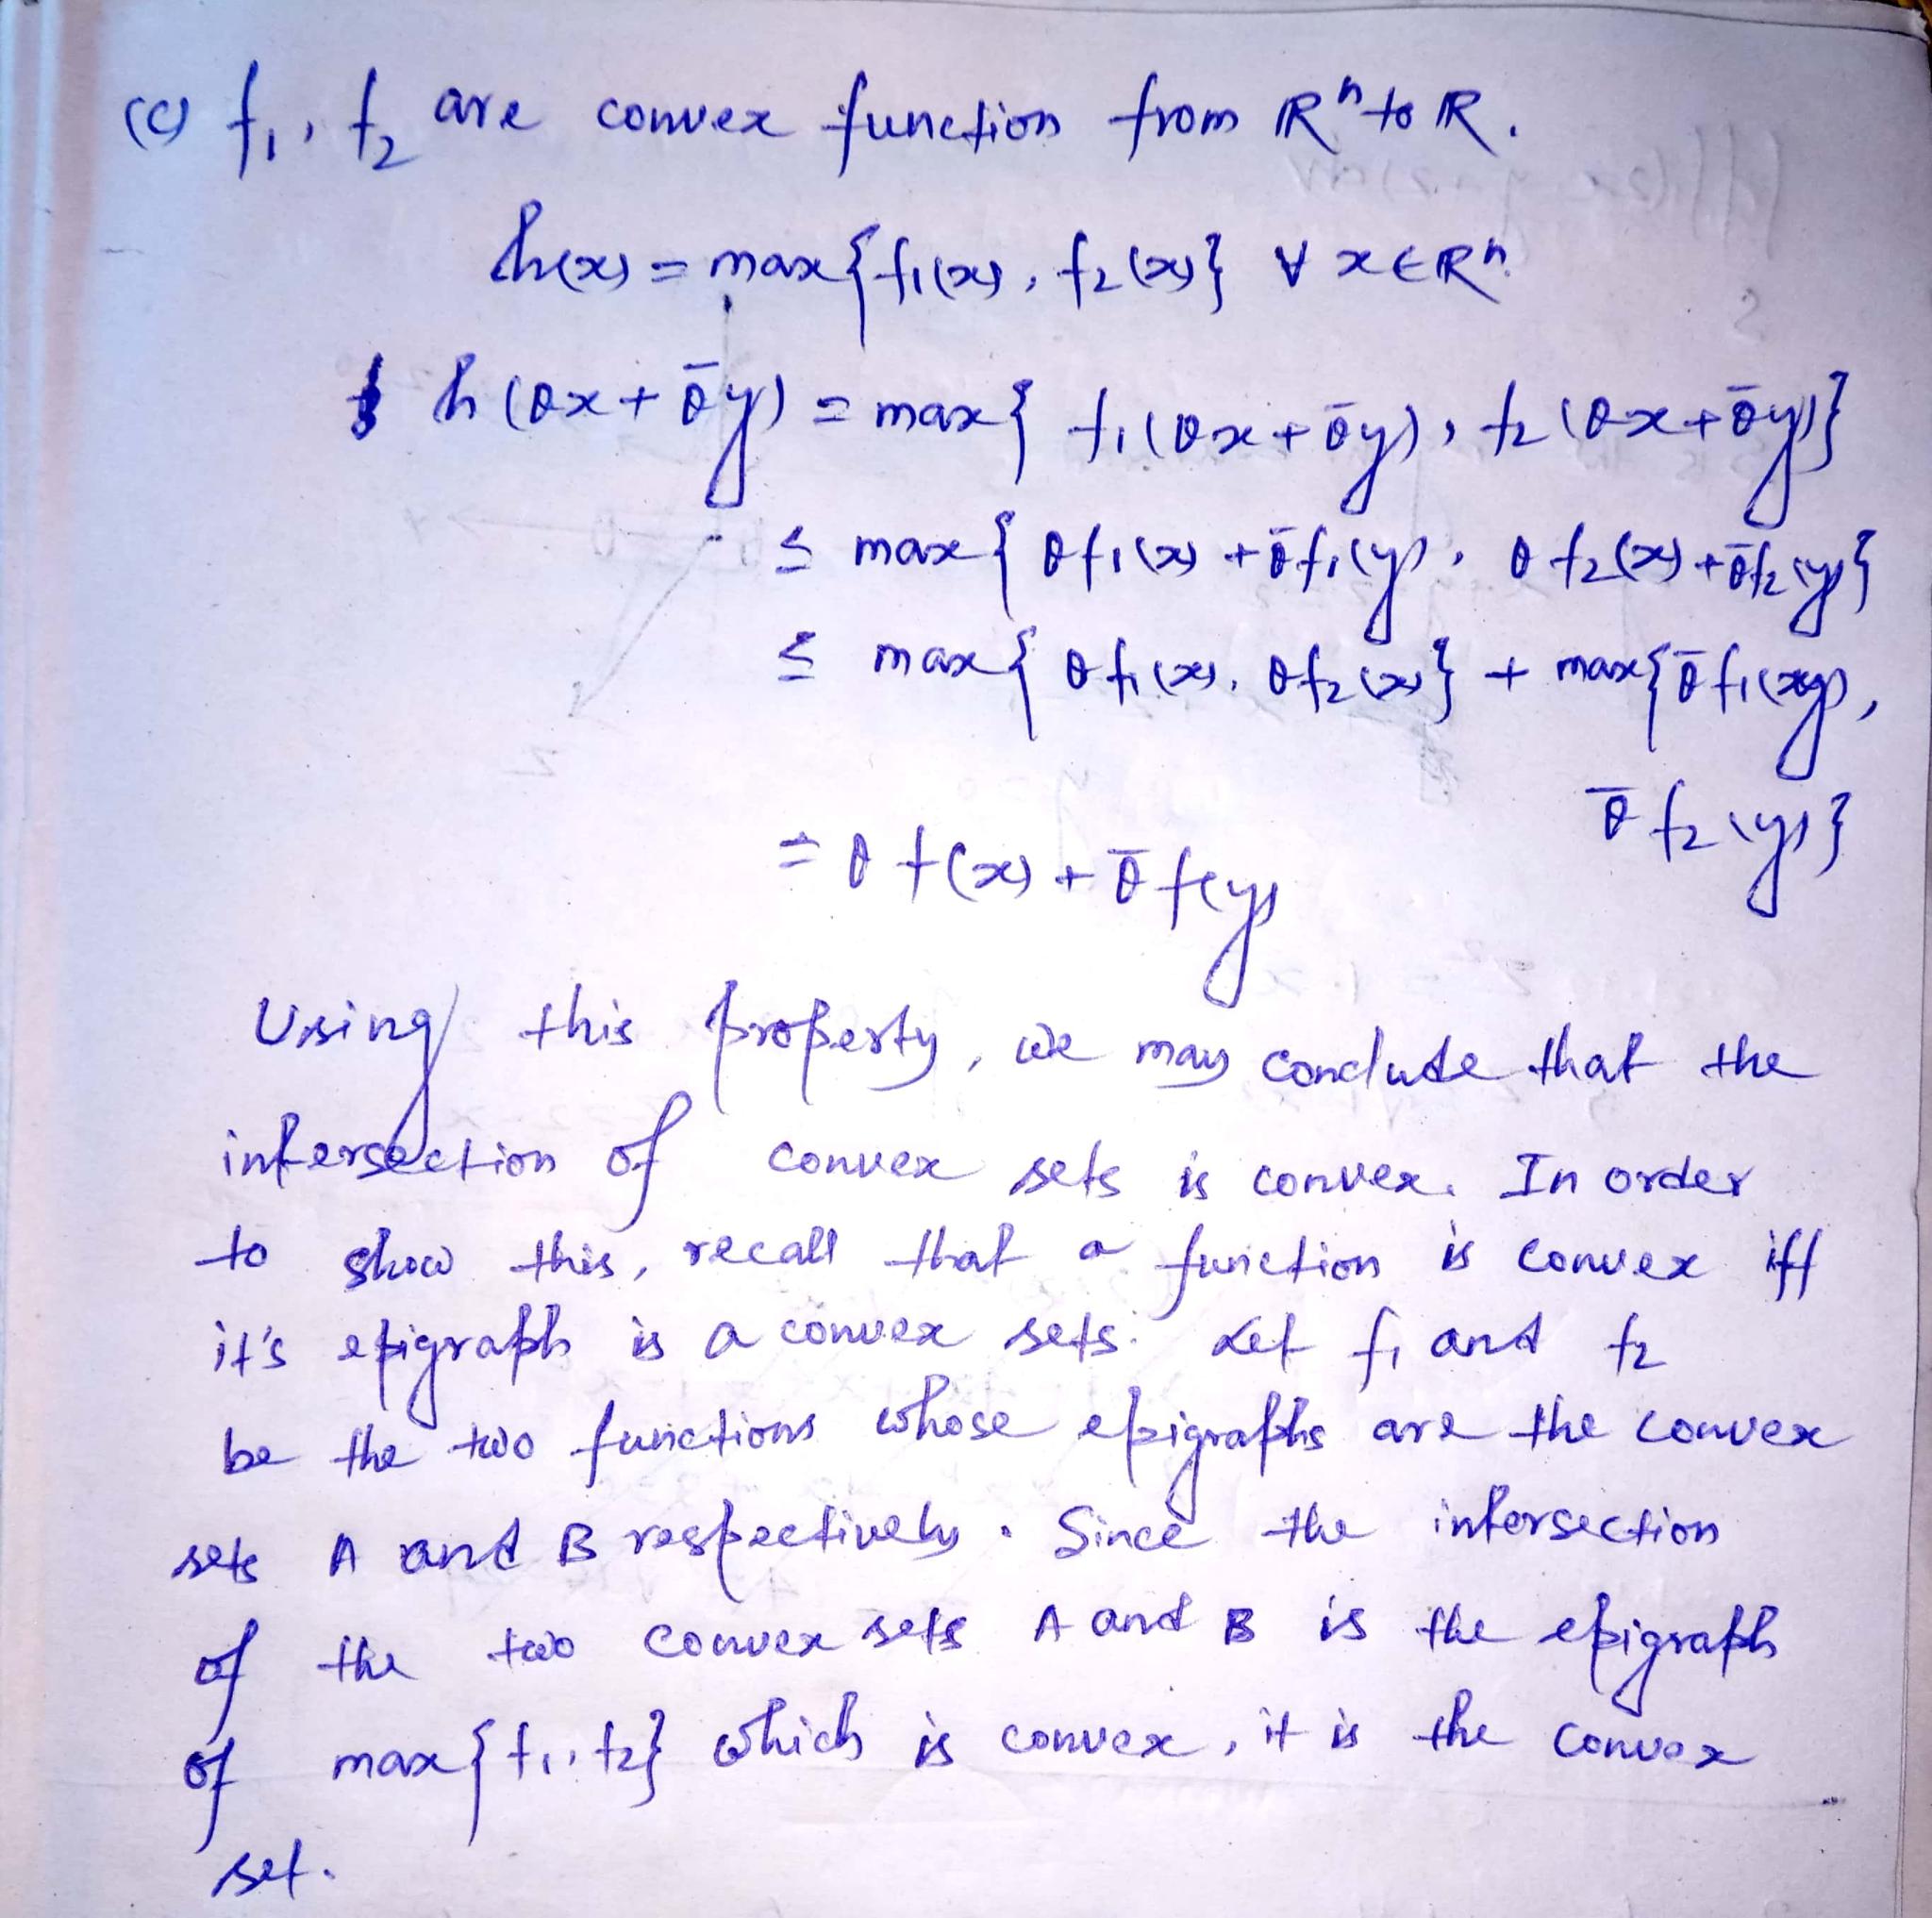 (c) f₁, f₂ are convex function from ℝⁿ to ℝ.
h(x) = max{f₁(x), f₂(x)} ∀ x ∈ ℝⁿ
h(θx + θ̄y) = max{ f₁(θx + θ̄y), f₂(θx + θ̄y)}
≤ max{ θf₁(x) + θ̄f₁(y), θf₂(x) + θ̄f₂(y)}
≤ max{ θf₁(x), θf₂(x)} + max{θ̄f₁(y),
θ̄f₂(y)}
= θf(x) + θ̄f(y)
Using this property, we may conclude that the
intersection of convex sets is convex. In order
to show this, recall that a function is convex iff
it's epigraph is a convex sets. Let f₁ and f₂
be the two functions whose epigraphs are the convex
sets A and B respectively. Since the intersection
of the two convex sets A and B is the epigraph
of max{f₁, f₂} which is convex, it is the convex
set.